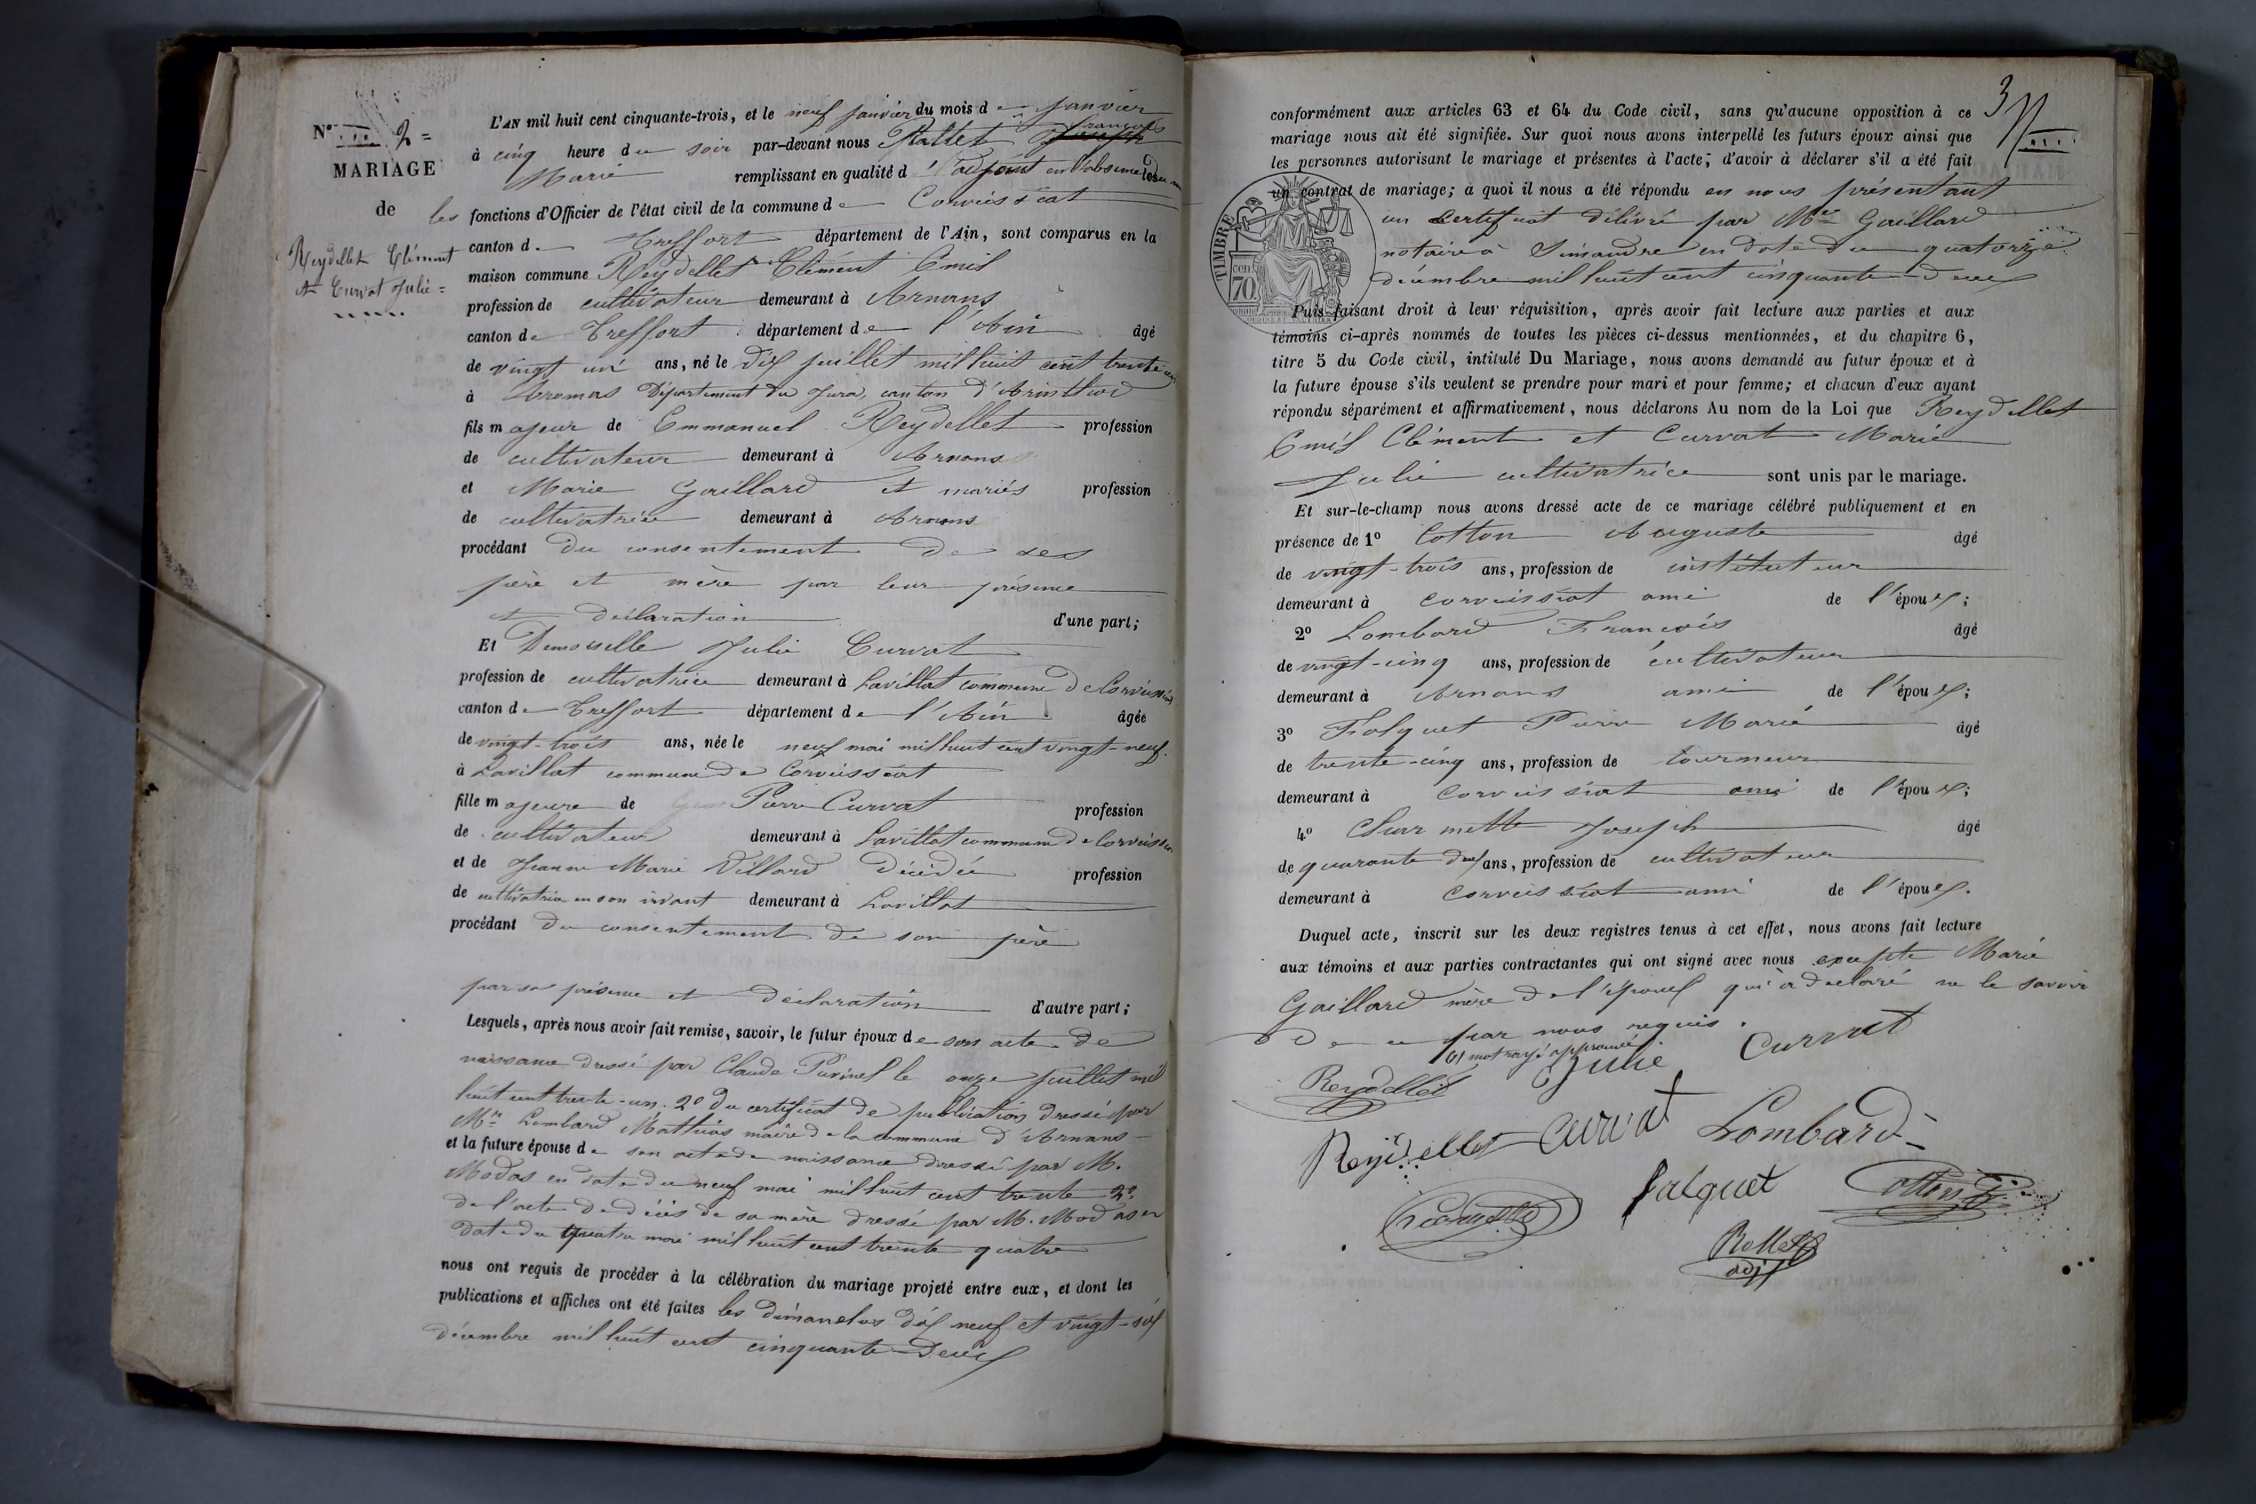 N° 2 =
MARIAGE
de les
Reydellet Clément
et Curvat Julie =
L'AN mil huit cent cinquante-trois, et le neuf janvier du mois de janvier
à cinq heure du soir par-devant nous Rollet Joseph françois
Marie remplissant en qualité d'adjoint en l'absence les
fonctions d'Officier de l'état civil de la commune de Corveissiat
canton de Treffort département de l'Ain, sont comparus en la
maison commune Reydellet Clément Emil
profession de cultivateur demeurant à Arnans
canton de Treffort département de l'Ain âgé
de vingt un ans, né le dix juillet mil huit cent trente un
à Aromas Département du Jura, canton d'Arinthod
fils majeur de Emmanuel Reydellet profession
de cultivateur demeurant à Arnans
et Marie Gaillard et mariés profession
de cultivatrice demeurant à Arnans
procédant du consentement de ses
père et mère par leur présence
et déclaration d'une part;
Et Demoiselle Julie Curvat
profession de cultivatrice demeurant à Lavillat commune de Corveissiat
canton de Treffort département de l'Ain âgée
de vingt-trois ans, née le neuf mai mil huit cent vingt-neuf.
à Lavillat commune de Corveissiat
fille majeure de Pierre Curvat profession
de cultivateur demeurant à Lavillat commune de Corveissiat
et de Jeanne Marie Villard Décédée profession
de cultivatrice en son vivant demeurant à Lavillat
procédant du consentement de son père
par sa présence et déclaration d'autre part;
Lesquels, après nous avoir fait remise, savoir, le futur époux de son acte de
naissance dressé par Claude le onze juillet mil
huit cent trente-un. 2° du certificat de publication dressé par
Mr Lombard Mathias maire de la commune d'Arnans
et la future épouse de son acte de naissance dressé par M.
Modas en date du neuf mai mil huit cent trente 2°
de l'acte de décès de sa mère dressé par M. Modas en
date du quatre mai mil huit cent trente quatre
nous ont requis de procéder à la célébration du mariage projeté entre eux, et dont les
publications et affiches ont été faites les dimanches dix neuf et vingt-six
décembre mil huit cent cinquante-deux
3
conformément aux articles 63 et 64 du Code civil, sans qu'aucune opposition à ce
mariage nous ait été signifiée. Sur quoi nous avons interpellé les futurs époux ainsi que
les personnes autorisant le mariage et présentes à l'acte; d'avoir à déclarer s'il a été fait
un contrat de mariage; à quoi il nous a été répondu en nous présentant
un certificat délivré par Me Gaillard
notaire à Simandre en date du quatorze
décembre mil huit cent cinquante-deux
TIMBRE
70
Puis faisant droit à leur réquisition, après avoir fait lecture aux parties et aux
témoins ci-après nommés de toutes les pièces ci-dessus mentionnées, et du chapitre 6,
titre 5 du Code civil, intitulé Du Mariage, nous avons demandé au futur époux et à
la future épouse s'ils veulent se prendre pour mari et pour femme; et chacun d'eux ayant
répondu séparément et affirmativement, nous déclarons Au nom de la Loi que Reydellet
Emil Clément et Curvat Marie
Julie cultivatrice sont unis par le mariage.
Et sur-le-champ nous avons dressé acte de ce mariage célébré publiquement et en
présence de 1° Cotton Auguste âgé
de vingt-trois ans, profession de instituteur
demeurant à Corveissiat ami de l'époux;
2° Lombard François âgé
de vingt-cinq ans, profession de cultivateur
demeurant à Arnans ami de l'époux;
3° Falquet Pierre Marie âgé
de trente-cinq ans, profession de tourneur
demeurant à Corveissiat ami de l'époux;
4° Charmette Joseph âgé
de quarante deux ans, profession de cultivateur
demeurant à Corveissiat ami de l'époux.
Duquel acte, inscrit sur les deux registres tenus à cet effet, nous avons fait lecture
aux témoins et aux parties contractantes qui ont signé avec nous excepté Marie
Gaillard mère de l'époux qui a déclaré ne le savoir
de ce par nous requis.
un mot rayé approuvé
Reydellet Julie Curvat
Reydellet Curvat Lombard
Charmette falquet Cotton
Rollet
adj